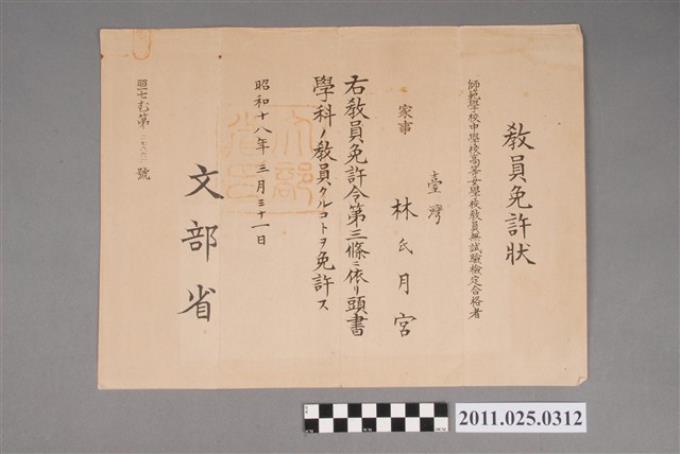 教員免許狀
師範學校中學校高等女學校教員無試驗檢定合格者
臺灣
家事
林氏月宮
右教員免許令第三條ニ依リ頭書
學科ノ教員タルコトヲ免許ス
昭和十八年三月三十一日
文部省
2011.025.0312